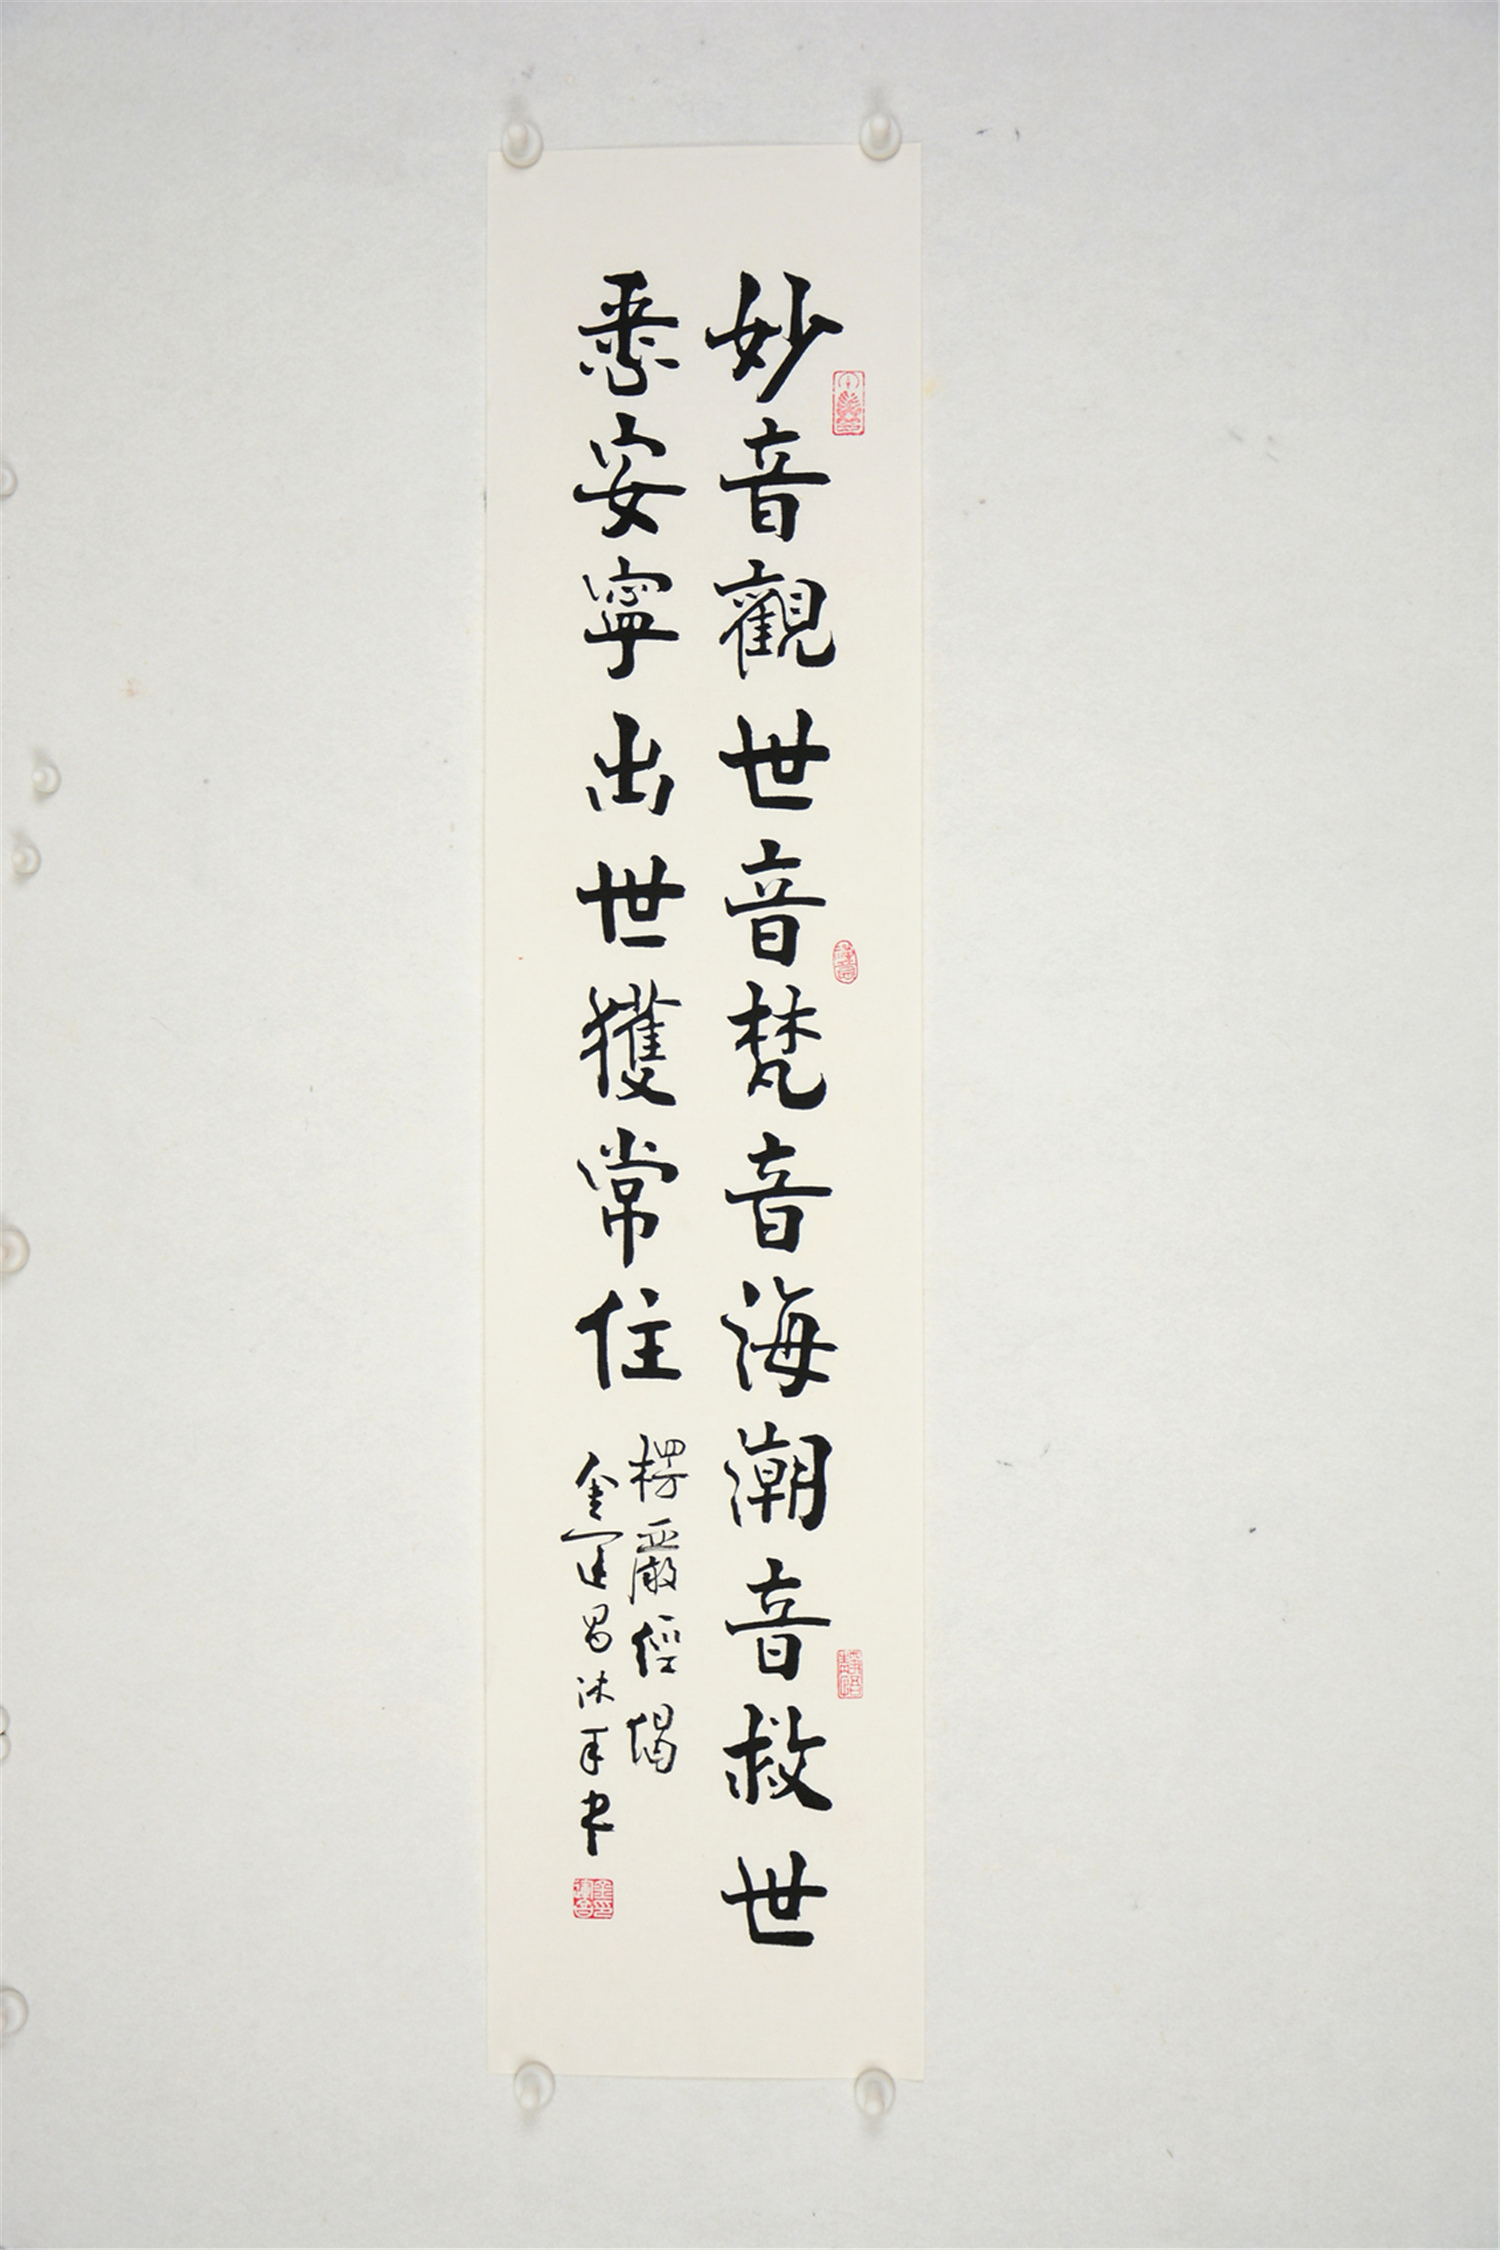 妙音觀世音梵音海潮音救世
悉安寧出世獲常住
楞嚴經偈
金運昌沐手书